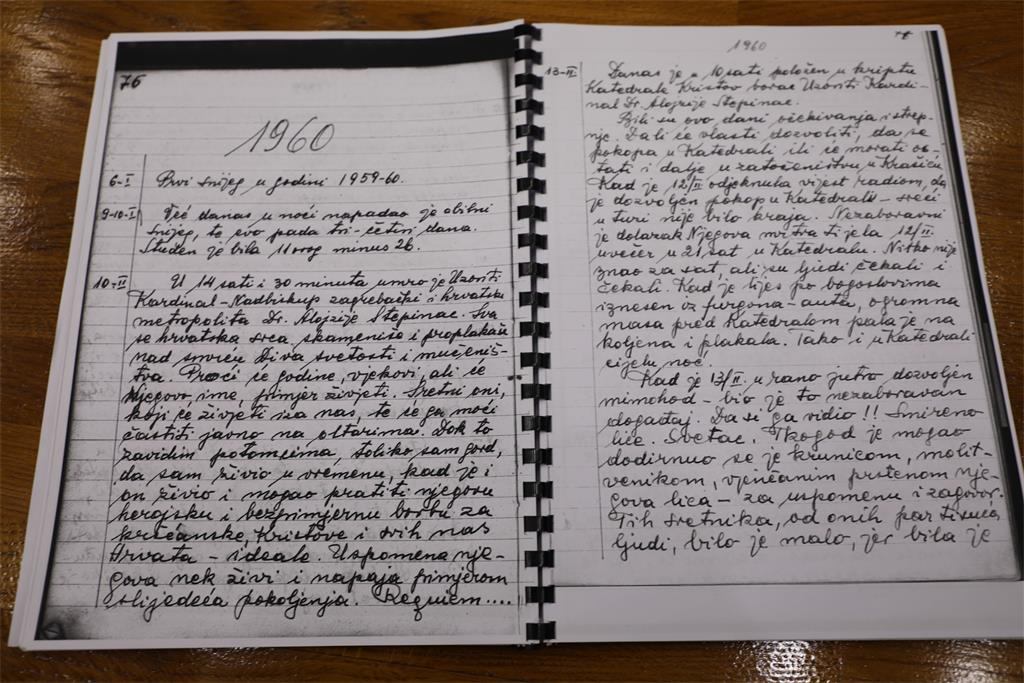 76
1960
6-I Prvi snijeg u godini 1959-60.
9-10-I Već danas u noći napadao je obilni
snijeg, te evo pada tri-četiri dana.
Studen je bila 11 ovog minus 26.
10-II U 14 sati i 30 minuta umro je Uzoriti
Kardinal-Nadbiskup zagrebački i hrvatski
metropolita Dr. Alojzije Stepinac. Sva
se hrvatska srca, skameniše i proplakaše
nad smrću živa svetosti i mučeniš-
tva. Proći će godine, vjekovi, ali će
Njegovo, ime, primjer živjeti. Sretni oni,
koji će živjeti iza nas, te će ga moći
častiti javno na oltarima. Dok to
zavidim potomcima, toliko sam gord,
da sam živio u vremenu, kad je i
on živio i mogao pratiti njegovu
herojsku i besprimjernu borbu za
kršćanske, Kristove i svih nas
Hrvata - ideale. Uspomena nje-
gova nek živi i napaja primjerom
slijedeća pokoljenja. Requiem....
1960
13-II Danas je u 10 sati položen u kriptu
Katedrale Kristov borac Uzoriti Kardi-
nal Dr. Alojzije Stepinac.
Bili su ovo dani očekivanja i strep-
nje. Da li će vlasti dozvoliti, da se
pokopa u Katedrali ili će morati os-
tati i dalje u zatočeništvu u Krašiću.
Kad je 12/II odjeknula vijest radiom, da
je dozvoljen pokop u Katedrali - sreći
u turi nije bilo kraja. Nezaboravni
je dolazak Njegova mrtva tijela 12/II.
uvečer u 21 sat u Katedralu. Nitko nije
znao za sat, ali su ljudi čekali i
čekali. Kad je lijes po bogoslovima
iznesen iz furgona-auta, ogromna
masa pred Katedralom pala je na
koljena i plakala. Tako i u Katedrali
cijelu noć.
Kad je 13/II. u rano jutro dozvoljen
mimohod - bio je to nezaboravan
događaj. Da si ga vidio!! Smireno
lice. Svetac. Tkogod je mogao
dodirnuo se je krunicom, molit-
venikom, vjenčanim prstenom nje-
gova lica - za uspomenu i zagovor.
Tih sretnika, od onih par tisuća
ljudi, bilo je malo, jer bila je